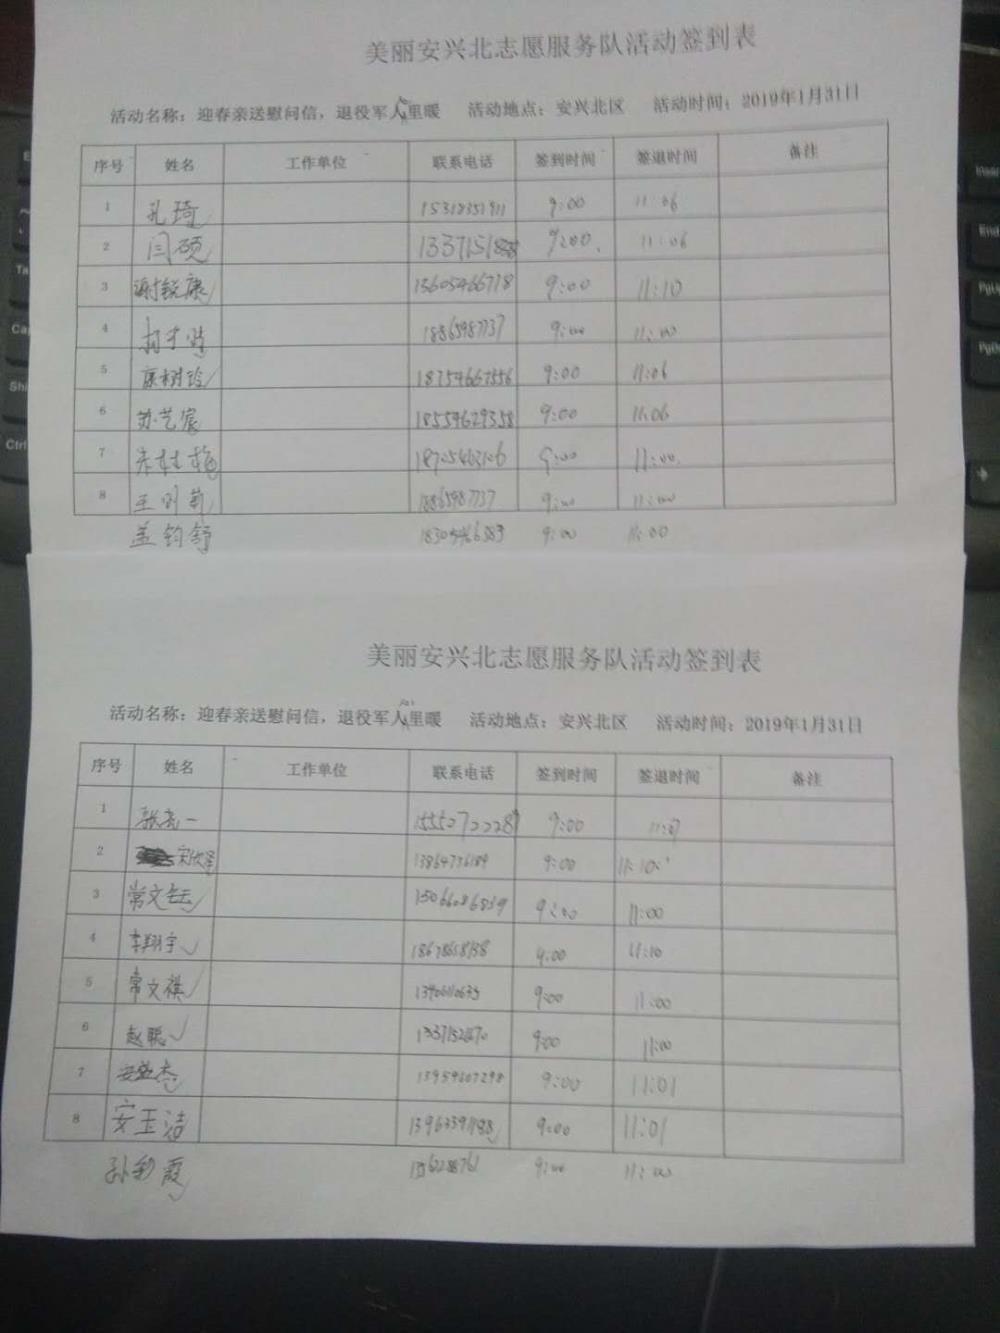 美丽安兴北志愿服务队活动签到表
活动名称：迎春亲送慰问信，退役军人里暖 活动地点：安兴北区 活动时间：2019年1月31日
序号 姓名 工作单位 联系电话 签到时间 签退时间 备注
1 孔琦 9:00 11:06
2 闫硕 9:00 11:06
3 谢毓康 15605466718 9:00 11:10
4 18865987737 9:00 11:00
5 康树玲 18754667556 9:00 11:06
6 苏艺宸 18554629358 9:00 11:06
7 朱桂梅 9:00 11:00
8 王 菊 18865987737 9:00 11:00
盖钧舒 18305466583 9:00 11:00
美丽安兴北志愿服务队活动签到表
活动名称：迎春亲送慰问信，退役军人里暖 活动地点：安兴北区 活动时间：2019年1月31日
序号 姓名 工作单位 联系电话 签到时间 签退时间 备注
1 张亮一 15552722287 9:00 11:07
2 13864736189 9:00 11:10
3 常文 15066086839 9:00 11:00
4 李翔宇 9:00 11:10
5 常文祺 9:00 11:00
6 赵聪 9:00 11:00
7 安益杰 13954607298 9:00 11:01
8 安玉洁 9:00 11:01
孙彩霞 9:00 11:00